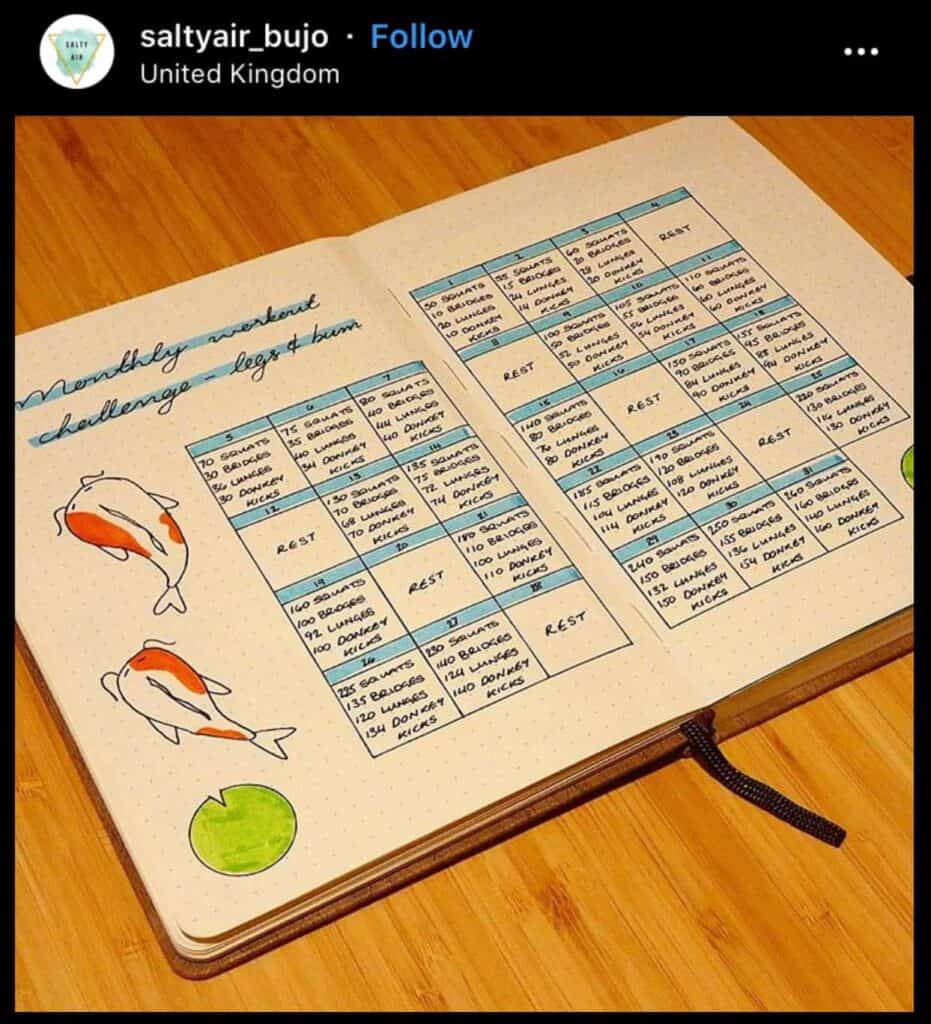 SALTY
AIR
saltyair_bujo · Follow
United Kingdom
Monthly workout
challenge - legs & bum
5
70 SQUATS
30 BRIDGES
36 LUNGES
30 DONKEY
KICKS
6
75 SQUATS
35 BRIDGES
40 LUNGES
34 DONKEY
KICKS
7
80 SQUATS
40 BRIDGES
44 LUNGES
40 DONKEY
KICKS
12
REST
13
130 SQUATS
70 BRIDGES
68 LUNGES
70 DONKEY
KICKS
14
135 SQUATS
75 BRIDGES
72 LUNGES
74 DONKEY
KICKS
19
160 SQUATS
100 BRIDGES
92 LUNGES
100 DONKEY
KICKS
20
REST
21
180 SQUATS
110 BRIDGES
100 LUNGES
110 DONKEY
KICKS
26
225 SQUATS
135 BRIDGES
120 LUNGES
134 DONKEY
KICKS
27
230 SQUATS
140 BRIDGES
124 LUNGES
140 DONKEY
KICKS
28
REST
1
50 SQUATS
10 BRIDGES
20 LUNGES
10 DONKEY
KICKS
2
55 SQUATS
15 BRIDGES
24 LUNGES
14 DONKEY
KICKS
3
60 SQUATS
20 BRIDGES
28 LUNGES
20 DONKEY
KICKS
4
REST
8
REST
9
100 SQUATS
50 BRIDGES
52 LUNGES
50 DONKEY
KICKS
10
105 SQUATS
55 BRIDGES
56 LUNGES
54 DONKEY
KICKS
11
110 SQUATS
60 BRIDGES
60 LUNGES
60 DONKEY
KICKS
15
140 SQUATS
80 BRIDGES
76 LUNGES
80 DONKEY
KICKS
16
REST
17
150 SQUATS
90 BRIDGES
84 LUNGES
90 DONKEY
KICKS
18
155 SQUATS
95 BRIDGES
88 LUNGES
94 DONKEY
KICKS
22
185 SQUATS
115 BRIDGES
104 LUNGES
114 DONKEY
KICKS
23
190 SQUATS
120 BRIDGES
108 LUNGES
120 DONKEY
KICKS
24
REST
25
220 SQUATS
130 BRIDGES
116 LUNGES
130 DONKEY
KICKS
29
240 SQUATS
150 BRIDGES
132 LUNGES
150 DONKEY
KICKS
30
250 SQUATS
155 BRIDGES
136 LUNGES
154 DONKEY
KICKS
31
260 SQUATS
160 BRIDGES
140 LUNGES
160 DONKEY
KICKS